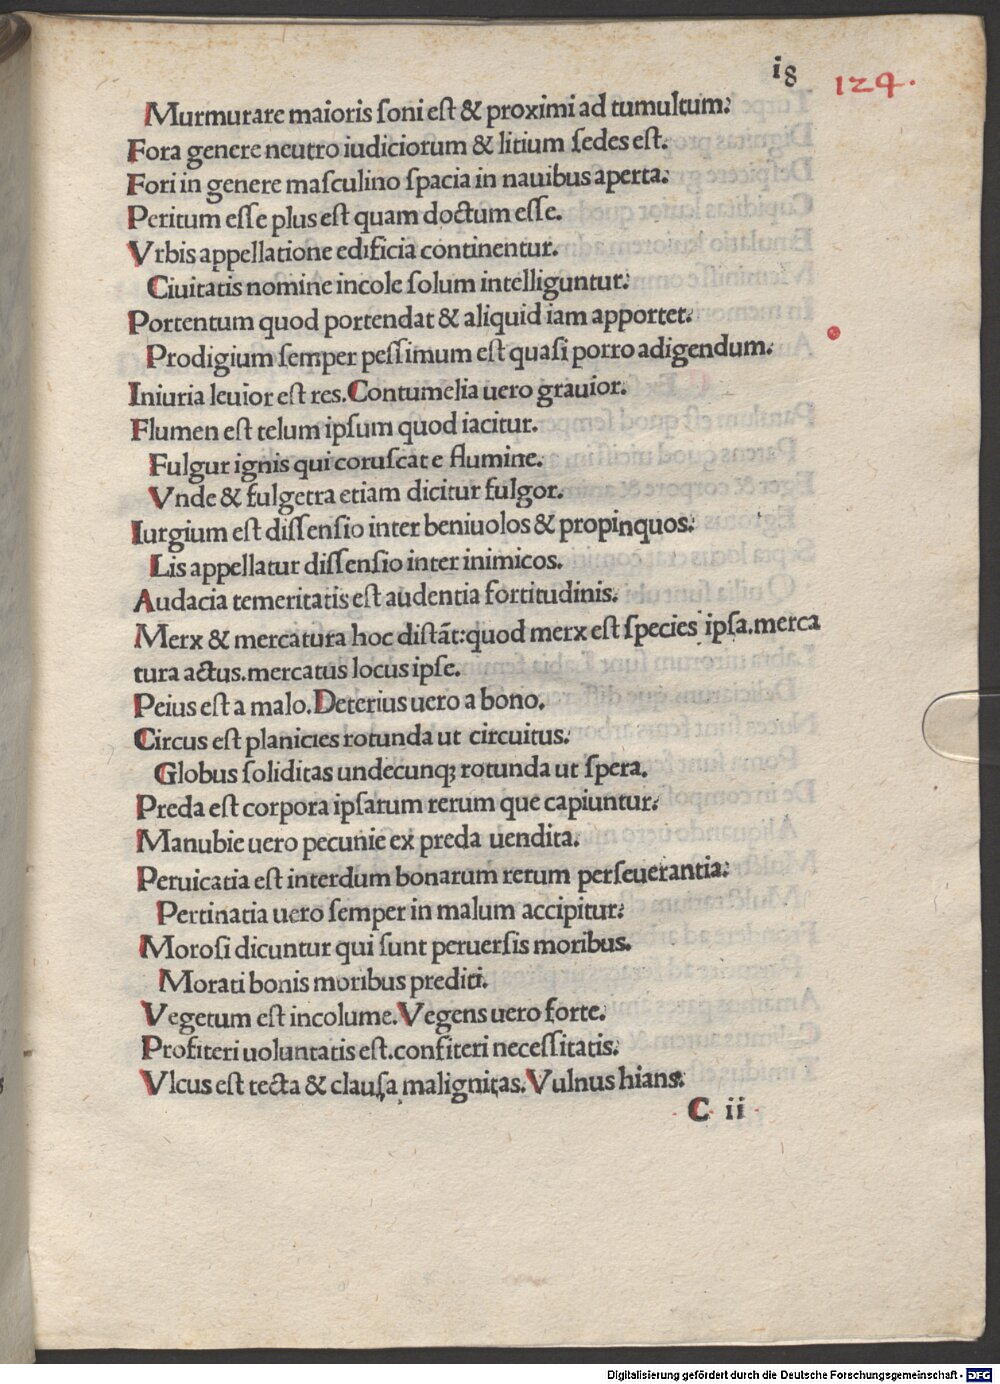 i8
124.
Murmurare maioris soni est & proximi ad tumultum.
Fora genere neutro iudiciorum & litium sedes est.
Fori in genere masculino spacia in nauibus aperta.
Peritum esse plus est quam doctum esse.
Vrbis appellatione edificia continentur.
Ciuitatis nomine incole solum intelliguntur.
Portentum quod portendat & aliquid iam apportet.
Prodigium semper pessimum est quasi porro adigendum.
Iniuria leuior est res. Contumelia uero grauior.
Flumen est telum ipsum quod iacitur.
Fulgur ignis qui coruscat e flumine.
Vnde & fulgetra etiam dicitur fulgor.
Iurgium est dissensio inter beniuolos & propinquos.
Lis appellatur dissensio inter inimicos.
Audacia temeritatis est audentia fortitudinis.
Merx & mercatura hoc distāt: quod merx est species ipsa. merca
tura actus. mercatus locus ipse.
Peius est a malo. Deterius uero a bono.
Circus est planicies rotunda ut circuitus.
Globus soliditas undecunqꝫ rotunda ut spera.
Preda est corpora ipsarum rerum que capiuntur.
Manubie uero pecunie ex preda uendita.
Peruicatia est interdum bonarum rerum perseuerantia.
Pertinatia uero semper in malum accipitur.
Morosi dicuntur qui sunt peruersis moribus.
Morati bonis moribus prediti.
Vegetum est incolume. Vegens uero forte.
Profiteri uoluntatis est. confiteri necessitatis.
Vlcus est tecta & clausa malignitas. Vulnus hians.
C ii
Digitalisierung gefördert durch die Deutsche Forschungsgemeinschaft - DFG